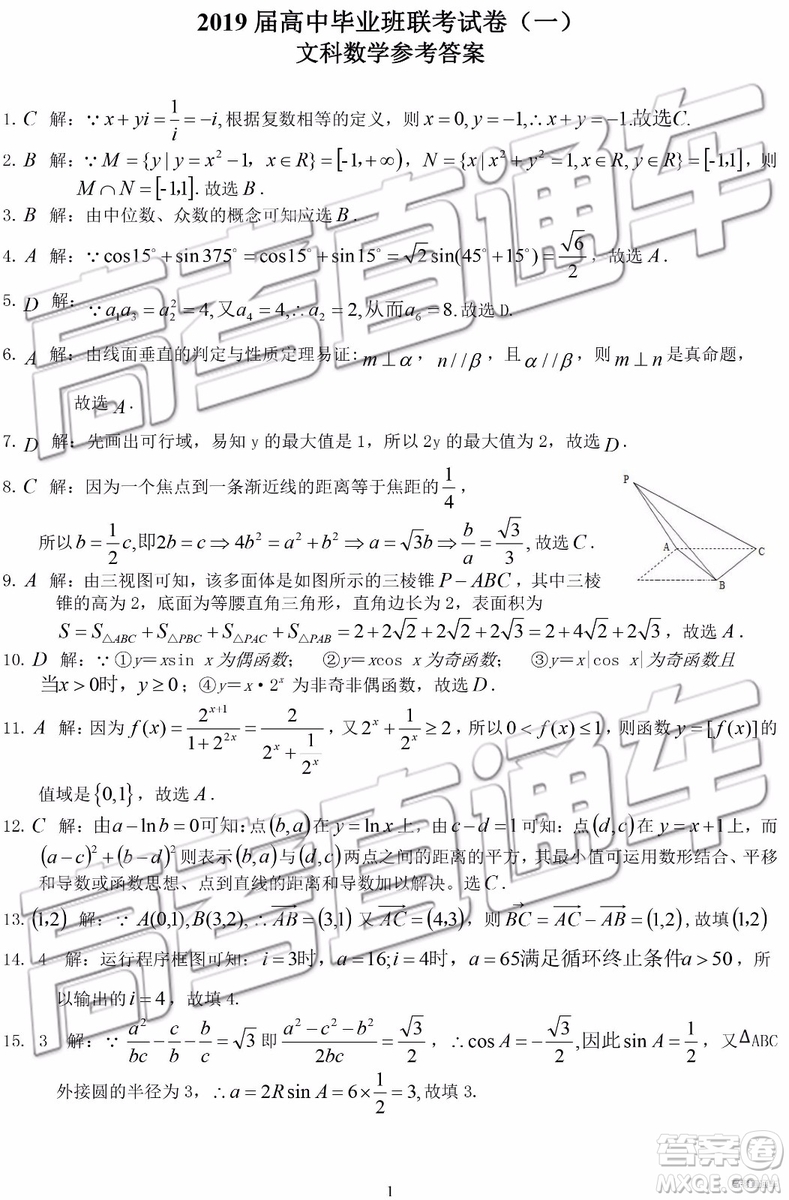 2019 届高中毕业班联考试卷（一）
文科数学参考答案
1. C 解：∵ x + yi = 1/i = −i, 根据复数相等的定义，则 x = 0, y = −1, ∴ x + y = −1. 故选C.
2. B 解：∵ M = {y | y = x² − 1，x ∈ R} = [-1,+∞)，N = {x | x² + y² = 1, x ∈ R, y ∈ R} = [-1,1]，则
M ∩ N = [-1,1]. 故选 B．
3. B 解：由中位数、众数的概念可知应选 B．
4. A 解：∵ cos15° + sin375° = cos15° + sin15° = √2 sin(45° + 15°) = √6/2，故选 A．
5. D 解：∵ a₁a₃ = a₂² = 4, 又 a₄ = 4, ∴ a₂ = 2, 从而 a₆ = 8. 故选 D.
6. A 解：由线面垂直的判定与性质定理易证: m ⊥ α，n // β，且 α // β，则 m ⊥ n 是真命题，
故选 A．
7. D 解：先画出可行域，易知 y 的最大值是 1，所以 2y 的最大值为 2，故选 D．
8. C 解：因为一个焦点到一条渐近线的距离等于焦距的 1/4，
所以 b = 1/2 c, 即 2b = c ⇒ 4b² = a² + b² ⇒ a = √3b ⇒ b/a = √3/3, 故选 C．
P
A
C
B
9. A 解：由三视图可知，该多面体是如图所示的三棱锥 P − ABC，其中三棱
锥的高为 2，底面为等腰直角三角形，直角边长为 2，表面积为
S = S△ABC + S△PBC + S△PAC + S△PAB = 2 + 2√2 + 2√2 + 2√3 = 2 + 4√2 + 2√3，故选 A．
10. D 解：∵ ①y＝xsin x为偶函数； ②y＝xcos x为奇函数； ③y＝x|cos x|为奇函数且
当x > 0时，y ≥ 0；④y＝x·2ˣ 为非奇非偶函数，故选 D．
11. A 解：因为 f(x) = 2^(x+1)/(1 + 2^(2x)) = 2/(2^x + 1/2^x)，又 2^x + 1/2^x ≥ 2，所以 0 < f(x) ≤ 1，则函数 y = [f(x)] 的
值域是 {0,1}，故选 A．
12. C 解：由 a − ln b = 0 可知：点 (b,a) 在 y = ln x 上，由 c − d = 1 可知：点 (d,c) 在 y = x + 1 上，而
(a − c)² + (b − d)² 则表示 (b,a) 与 (d,c) 两点之间的距离的平方，其最小值可运用数形结合、平移
和导数或函数思想、点到直线的距离和导数加以解决。选 C．
13. (1,2) 解：∵ A(0,1), B(3,2), ∴ AB = (3,1) 又 AC = (4,3)，则 BC = AC − AB = (1,2)，故填 (1,2)
14. 4 解：运行程序框图可知：i = 3时，a = 16; i = 4时，a = 65满足循环终止条件a > 50，所
以输出的 i = 4，故填 4.
15. 3 解：∵ a²/bc − c/b − b/c = √3 即 (a² − c² − b²)/2bc = √3/2，∴ cos A = −√3/2, 因此 sin A = 1/2，又△ABC
外接圆的半径为 3，∴ a = 2R sin A = 6 × 1/2 = 3, 故填 3.
1
高考直通车
高考直通车
答案圈